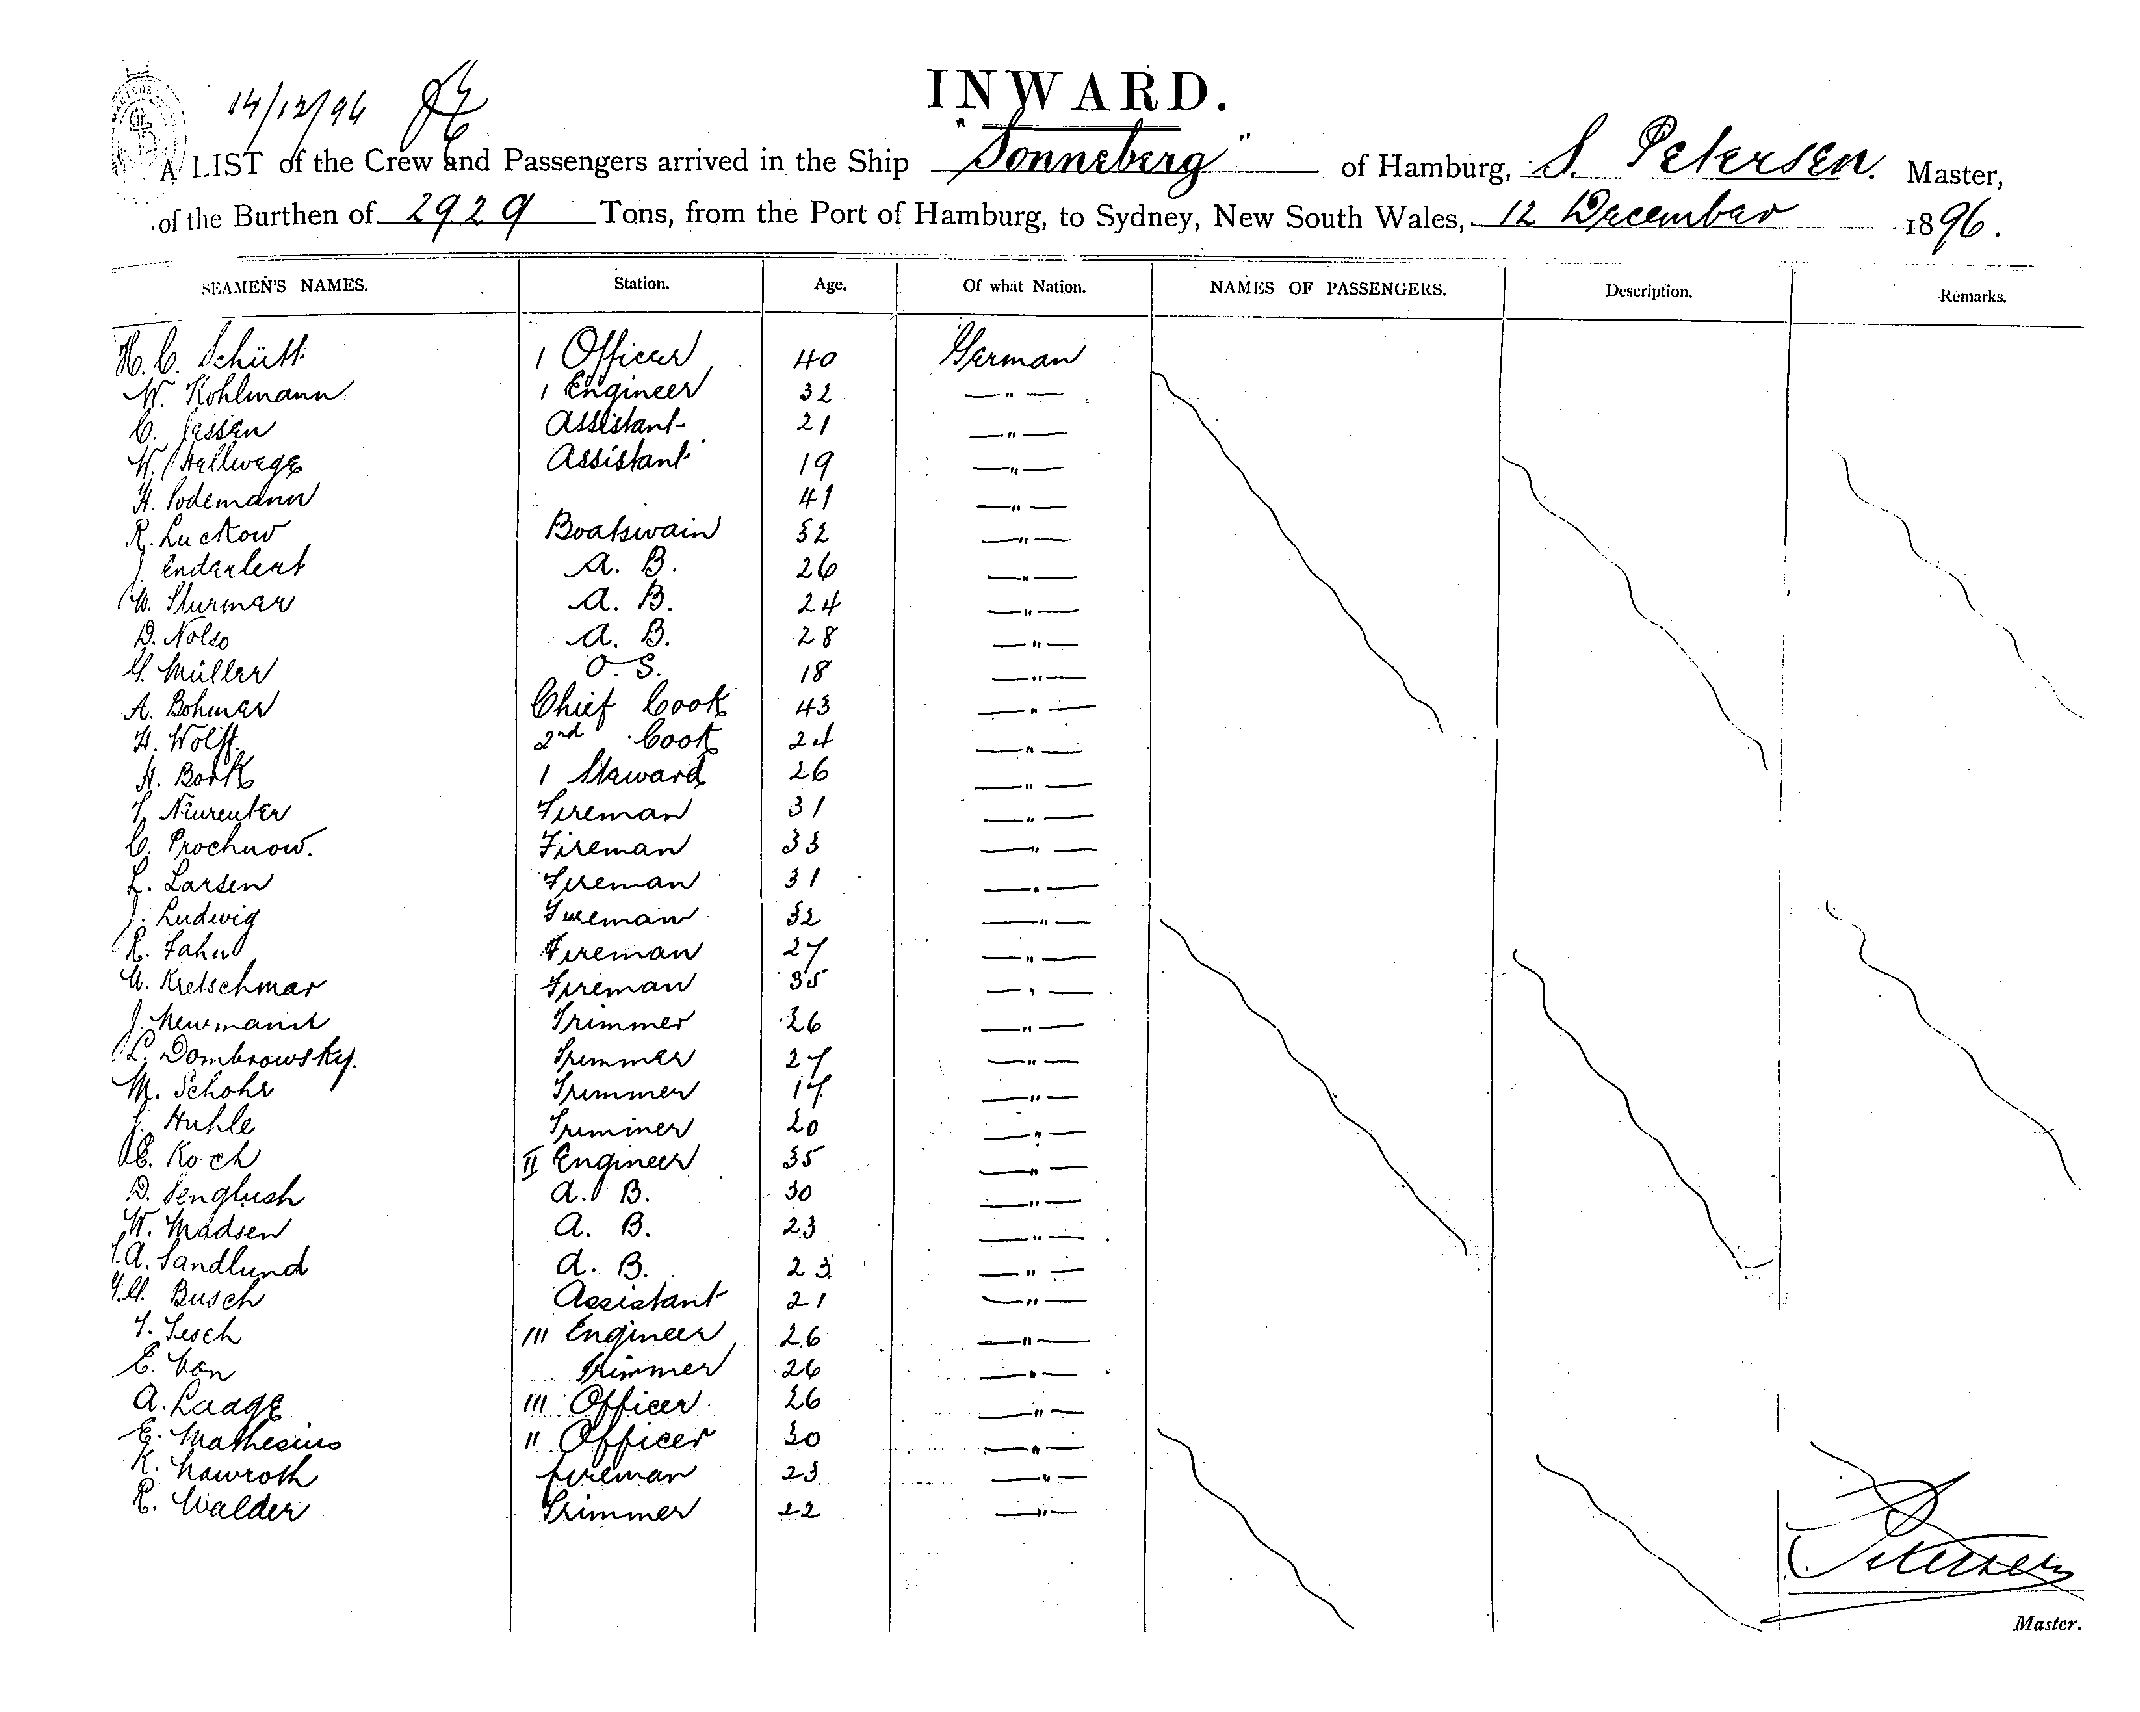 14/12/96
INWARD.
A LIST of the Crew and Passengers arrived in the Ship "Sonneberg" of Hamburg, S. Petersen. Master,
of the Burthen of 2929 Tons, from the Port of Hamburg, to Sydney, New South Wales, 12 December 1896.
SEAMEN'S NAMES. Station. Age. Of what Nation. NAMES OF PASSENGERS. Description. Remarks.
H. C. Schütt 1 Officer 40 German
W. Kohlmann 1 Engineer 32 "
C. Jessen Assistant 21 "
W. Hellwege Assistant 19 "
H. Podemann 41 "
R. Luckow Boatswain 32 "
J. Enderlert A. B. 26 "
W. Sturmer A. B. 24 "
D. Nolso A. B. 28 "
G. Müller O. S. 18 "
A. Bohmer Chief Cook 43 "
H. Wolff. 2nd Cook 24 "
H. Bork 1 Steward 26 "
Neureuter Fireman 31 "
C. Prochnow. Fireman 33 "
L. Larsen Fireman 31 "
J. Ludwig Fireman 32 "
R. Fahn Fireman 27 "
Kretschmar Fireman 35 "
J. Neumann Trimmer 26 "
L. Dombrowsky. Trimmer 27 "
M. Schohr Trimmer 17 "
Huhle Trimmer 20 "
C. Koch II Engineer 35 "
D. Senglush A. B. 30 "
W. Madsen A. B. 23 "
A. Sandlund A. B. 23 "
Busch Assistant 21 "
F. Tesch III Engineer 26 "
E. Von Trimmer 26 "
A. Laage III Officer 26 "
E. Mathesius II Officer 30 "
K. Nawroth fireman 23 "
R. Walder Trimmer 22 "
Petersen
Master.